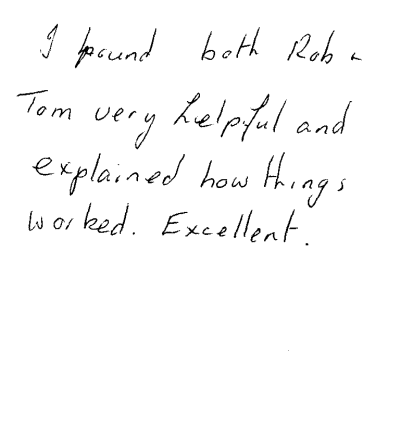 I found both Rob &
Tom very helpful and
explained how things
worked. Excellent.